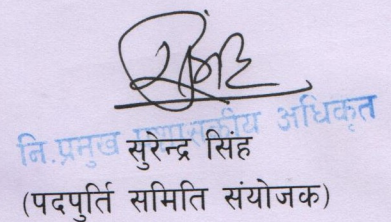 नि.प्रमुख प्रशासकीय अधिकृत
सुरेन्द्र सिंह
(पदपुर्ति समिति संयोजक)